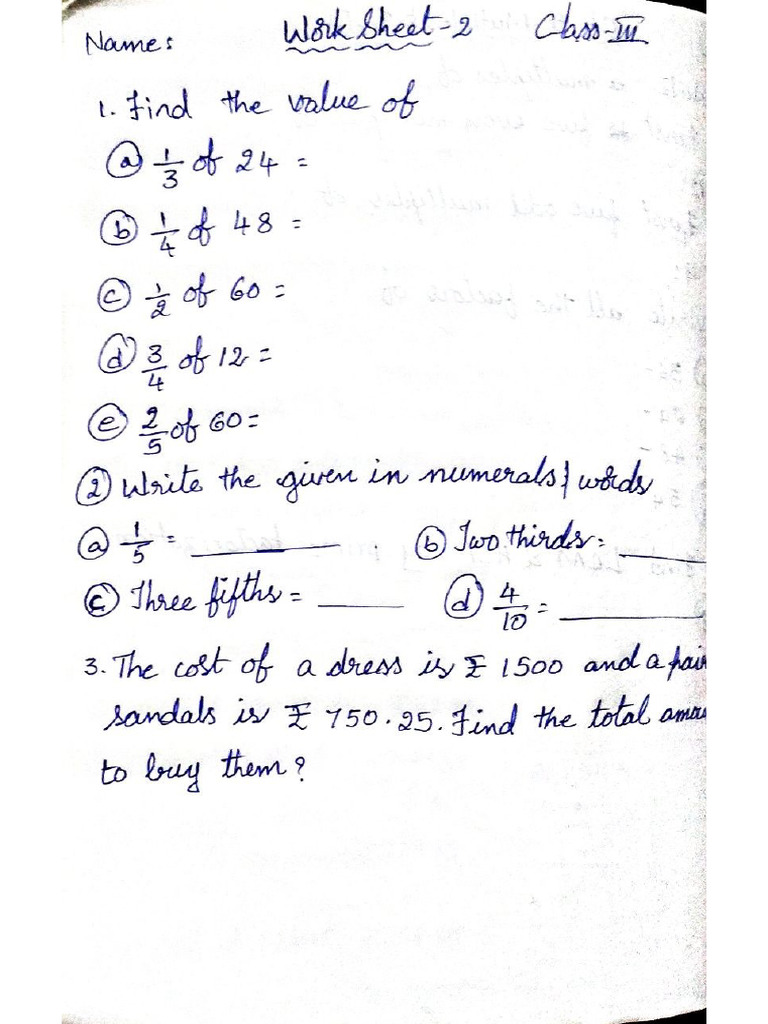 Name: Work Sheet-2 Class-III
1. Find the value of
(a) 1/3 of 24 =
(b) 1/4 of 48 =
(c) 1/2 of 60 =
(d) 3/4 of 12 =
(e) 2/5 of 60 =
(2) Write the given in numerals/words
(a) 1/5 = ________ (b) Two thirds = ________
(c) Three fifths = ________ (d) 4/10 = ________
3. The cost of a dress is ₹ 1500 and a pair
sandals is ₹ 750.25. Find the total
to buy them?